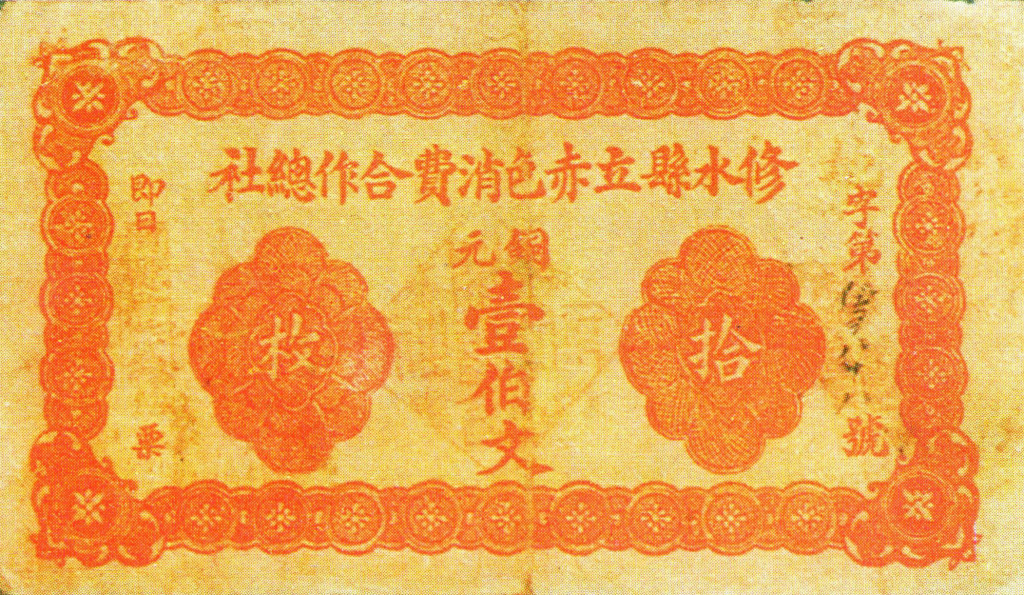 修水縣立赤色消費合作總社
字第
號
銅元
壹伯文
拾枚
即日
票